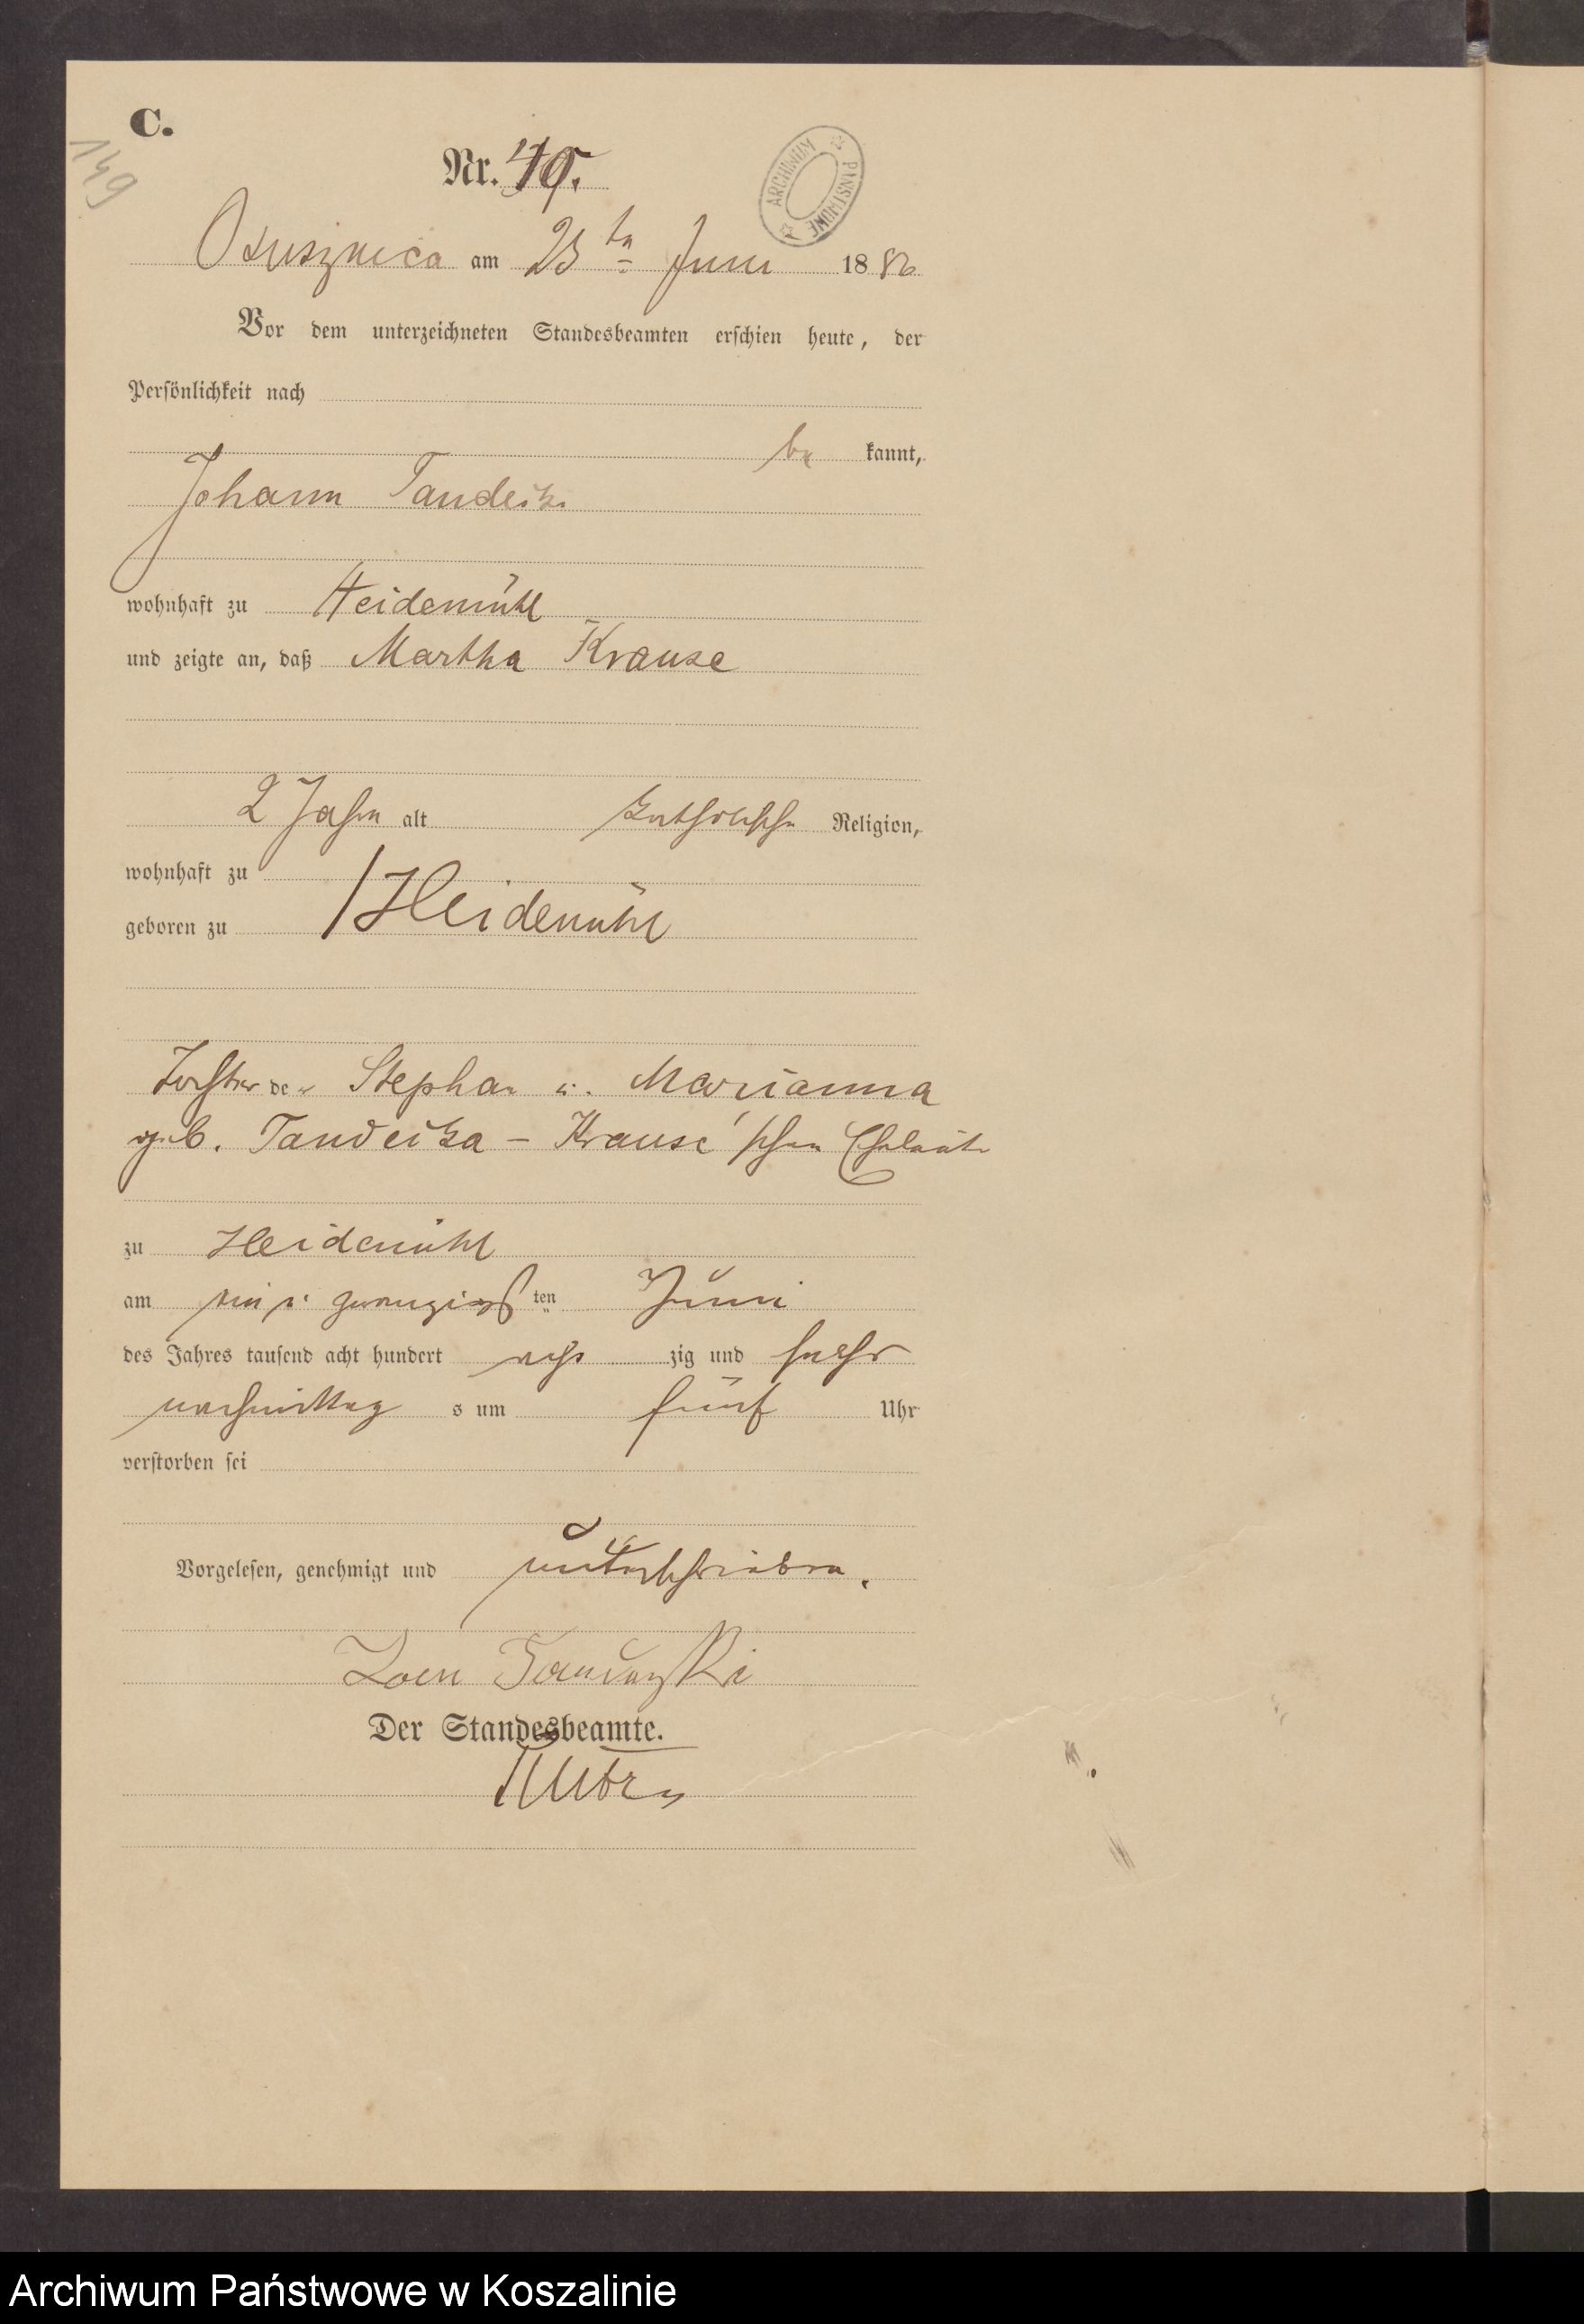 C.
149
Nr. 49.
ARCHIWUM PAŃSTWOWE
Ossusznica am 23ten Juni 1886
Vor dem unterzeichneten Standesbeamten erschien heute, der
Persönlichkeit nach
be kannt,
Johann Tandeika
wohnhaft zu Heidemühl
und zeigte an, daß Martha Krause
2 Jahre alt katholischer Religion,
wohnhaft zu
geboren zu Heidemühl
Tochter der Stephan u. Marianna
geb. Tandeika - Krause'schen Eheleute
zu Heidemühl
am ein u. zwanzigsten Juni
des Jahres tausend acht hundert acht zig und sechs
nachmittag s um fünf Uhr
verstorben sei
Vorgelesen, genehmigt und unterschrieben.
Der Standesbeamte.
Archiwum Państwowe w Koszalinie